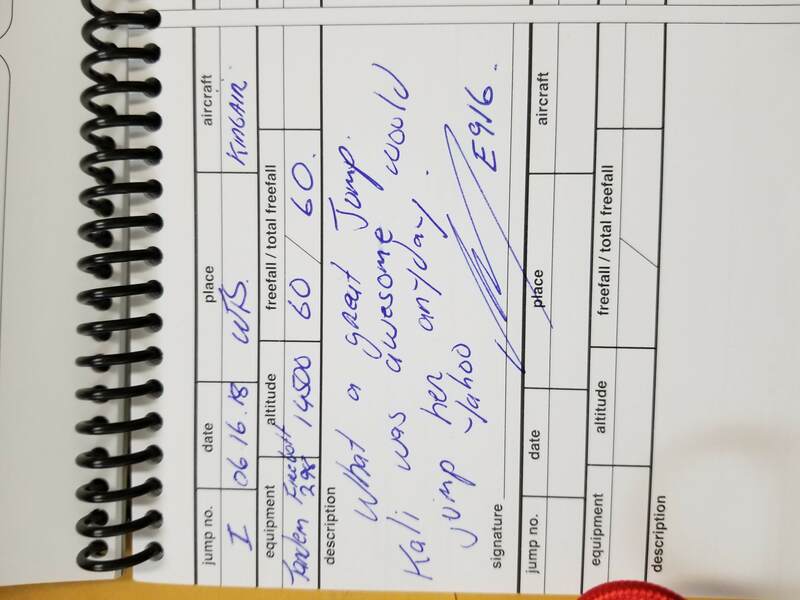 jump no. date place aircraft
I 06 16.18 WTS. KINGAIR.
equipment altitude freefall / total freefall
Tandem 14500 60 / 60.
description
What a great Jump.
Kali was awesome would
jump her anyday.
Yahoo
signature E916.
jump no. date place aircraft
equipment altitude freefall / total freefall
/
description